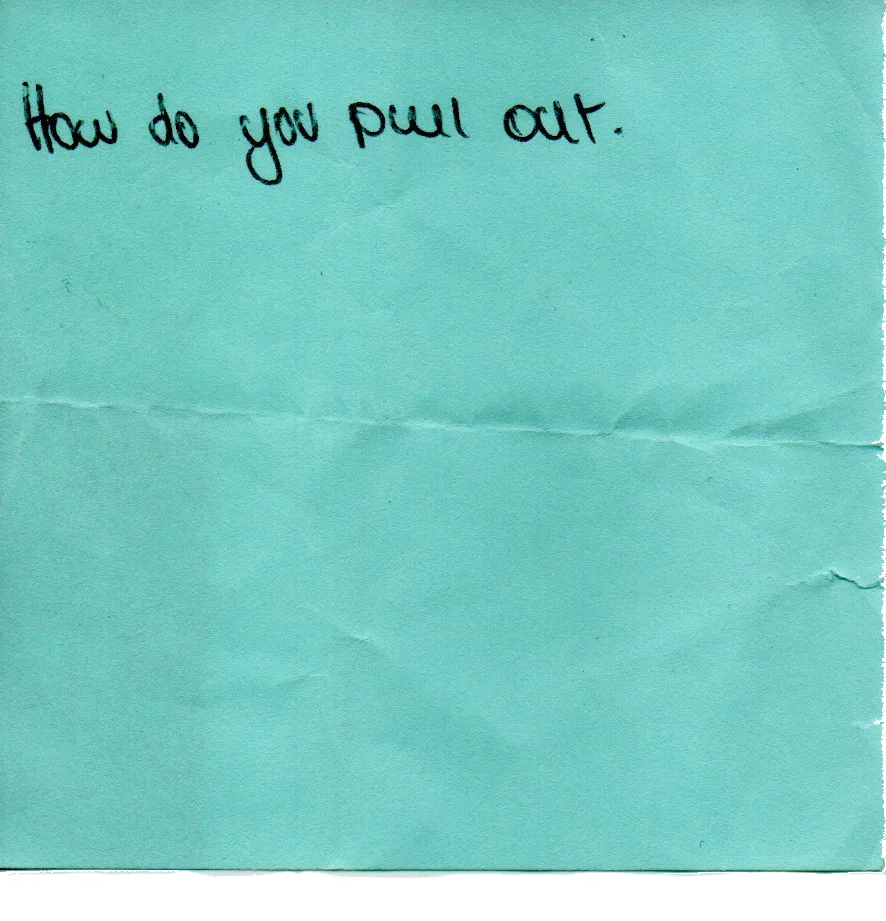 How do you pull out.